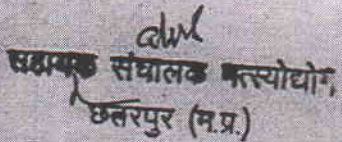 सहायक संचालक मत्स्योद्योग,
छतरपुर (म.प्र.)